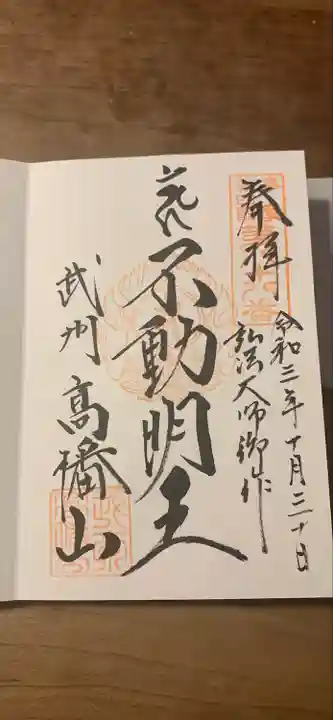 奉拝
令和三年十月三十日
弘法大師御作
不動明王
武州 高幡山